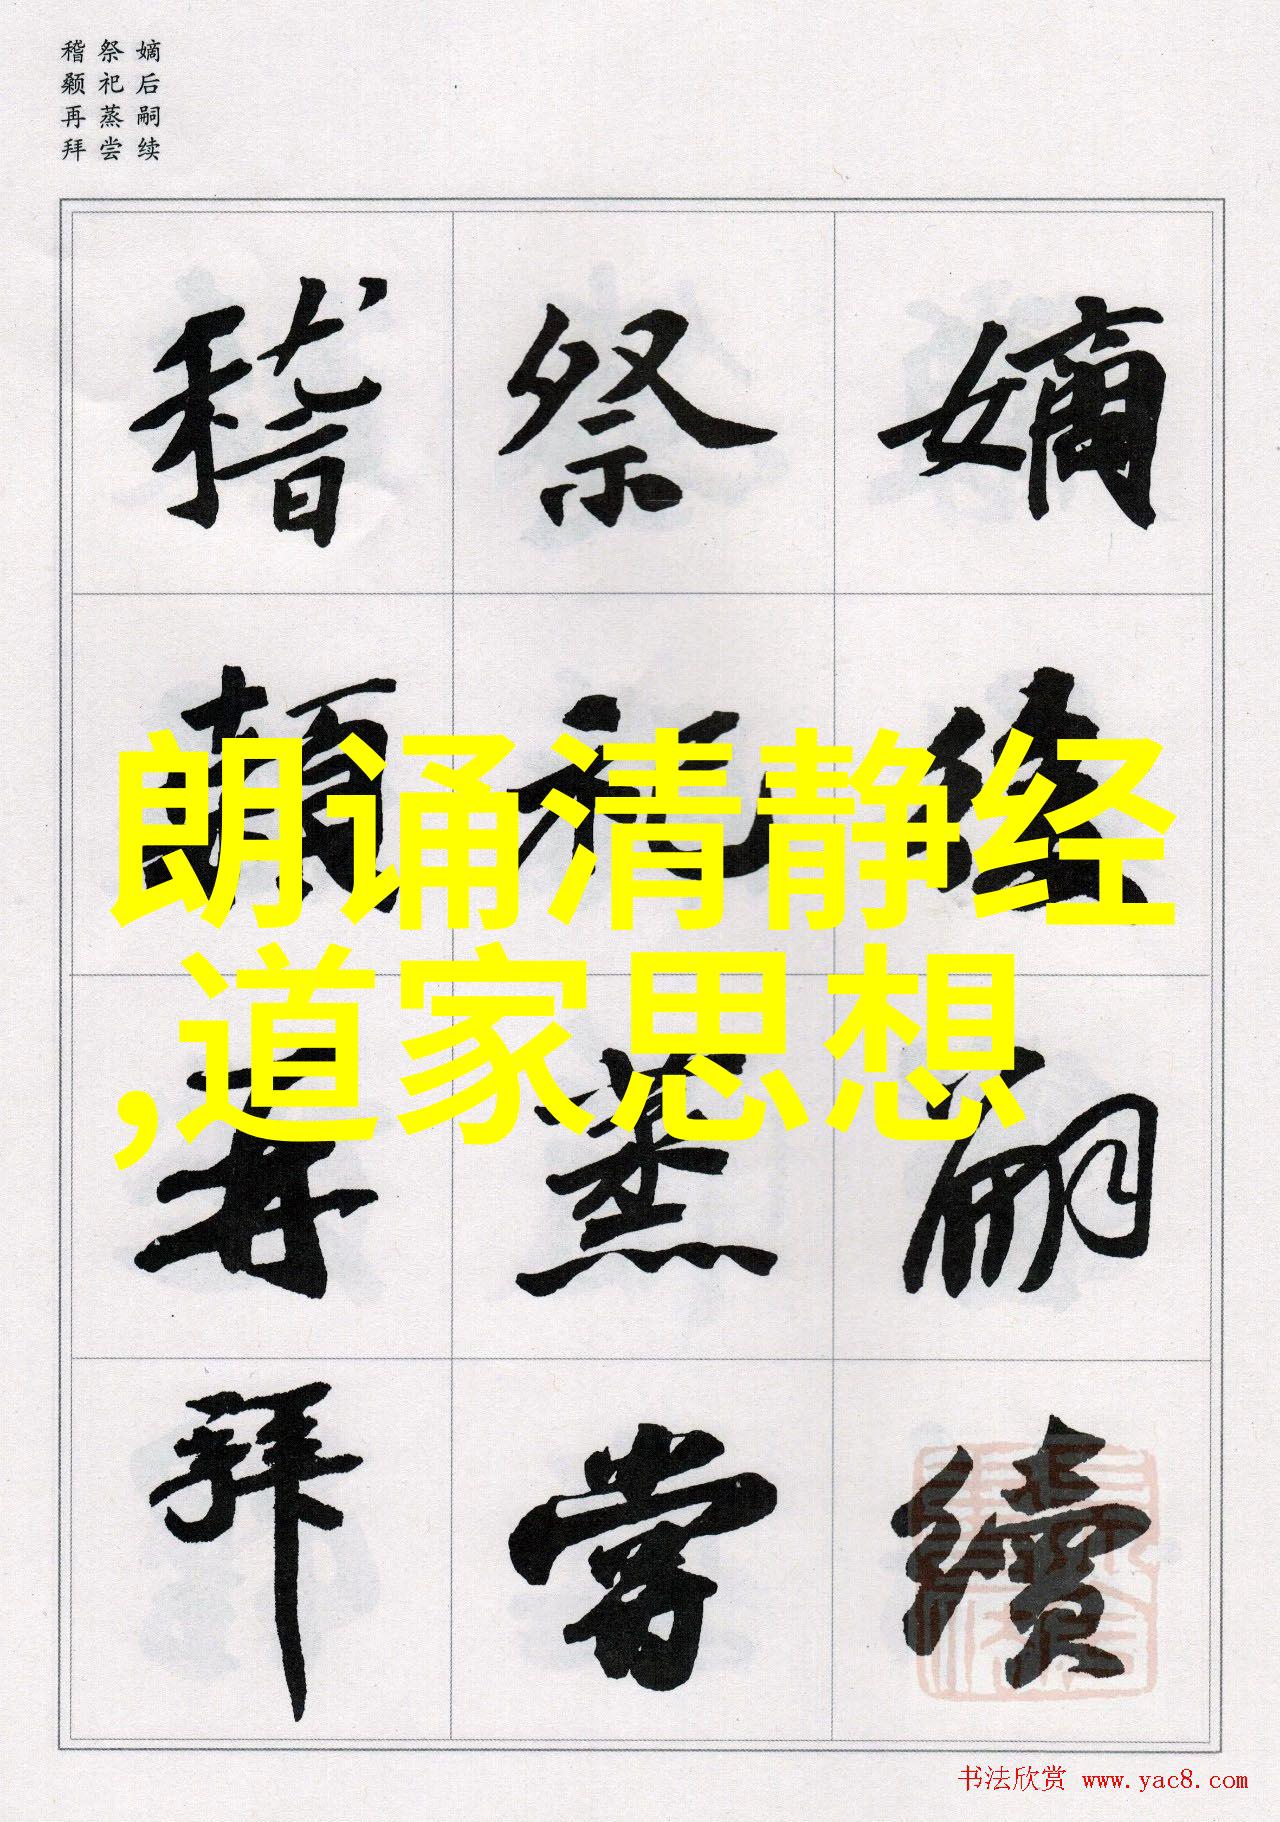 嫡后嗣续
祭祀蒸尝
稽颡再拜
嫡后嗣續
祭祀蒸嘗
稽顙再拜
朗诵清静经
,道家思想
书法欣赏 www.yac8.com